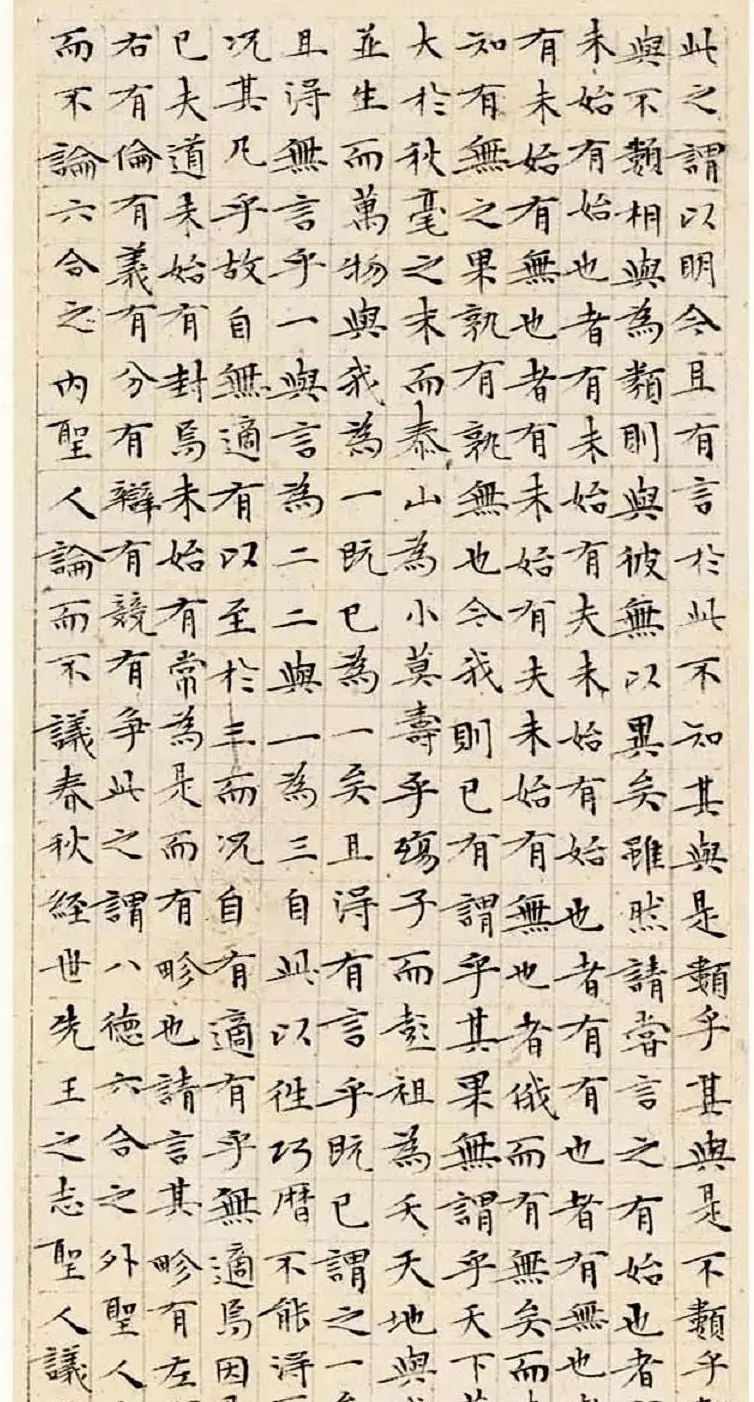 此之謂以明今且有言於此不知其與是類乎其與是不類乎
與不類相與為類則與彼無以異矣雖然請嘗言之有始也者
未始有始也者有未始有夫未始有始也者有有也者有無也
有未始有無也者有未始有夫未始有無也者俄而有無矣而
知有無之果孰有孰無也今我則已有謂乎其果無謂乎天下
大於秋毫之末而泰山為小莫壽乎殤子而彭祖為夭天地與
並生而萬物與我為一既已為一矣且得有言乎既已謂之一
且得無言乎一與言為二二與一為三自此以往巧曆不能得
况其凡乎故自無適有以至於三而况自有適有乎無適焉因
已夫道未始有封焉未始有常為是而有畛也請言其畛有左
右有倫有義有分有辯有競有爭此之謂八德六合之外聖人
而不論六合之內聖人論而不議春秋經世先王之志聖人議